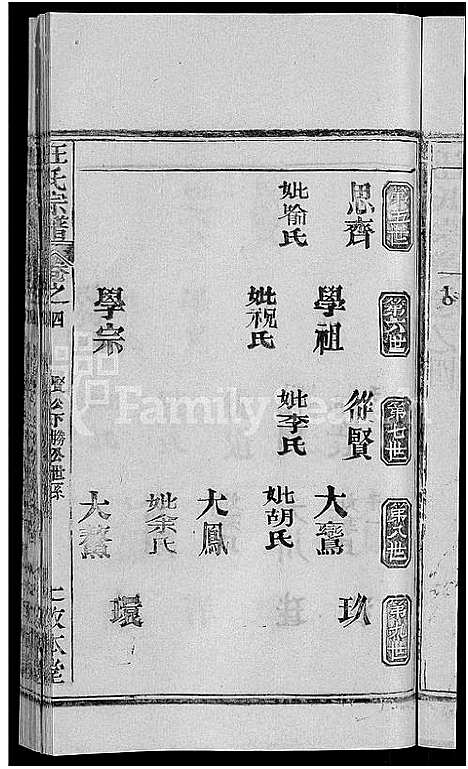 第五世
第六世
第七世
第八世
第九世
思齊
妣喻氏
學祖
妣祝氏
學宗
從賢
妣李氏
大鸞
妣胡氏
大鳳
妣余氏
大鰲
玖
環
汪氏宗譜
卷首之一
四
賢公下勝公世系
敦本堂
FamilySearch